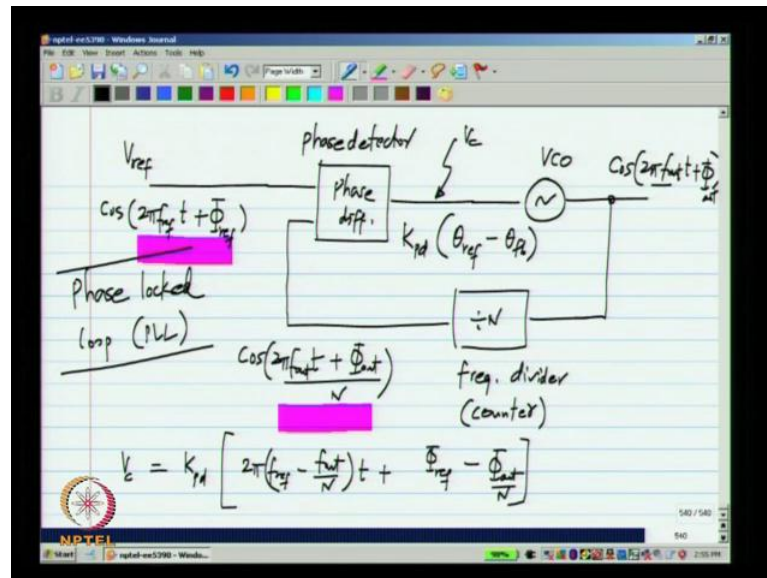 nptel-ee5390 - Windows Journal
File Edit View Insert Actions Tools Help
Page Width
B I
phase detector
V_c
V_ref
VCO
Cos(2πf_out t + Φ_out)
phase
diff.
Cos(2πf_ref t + Φ_ref)
K_pd (θ_ref - θ_fb)
Phase locked
loop (PLL)
÷N
Cos(2πf_out t + Φ_out / N)
freq. divider
(counter)
V_c = K_pd [2π(f_ref - f_out/N)t + Φ_ref - Φ_out/N]
540 / 540
540
NPTEL
start
nptel-ee5390 - Windo...
2:55 PM